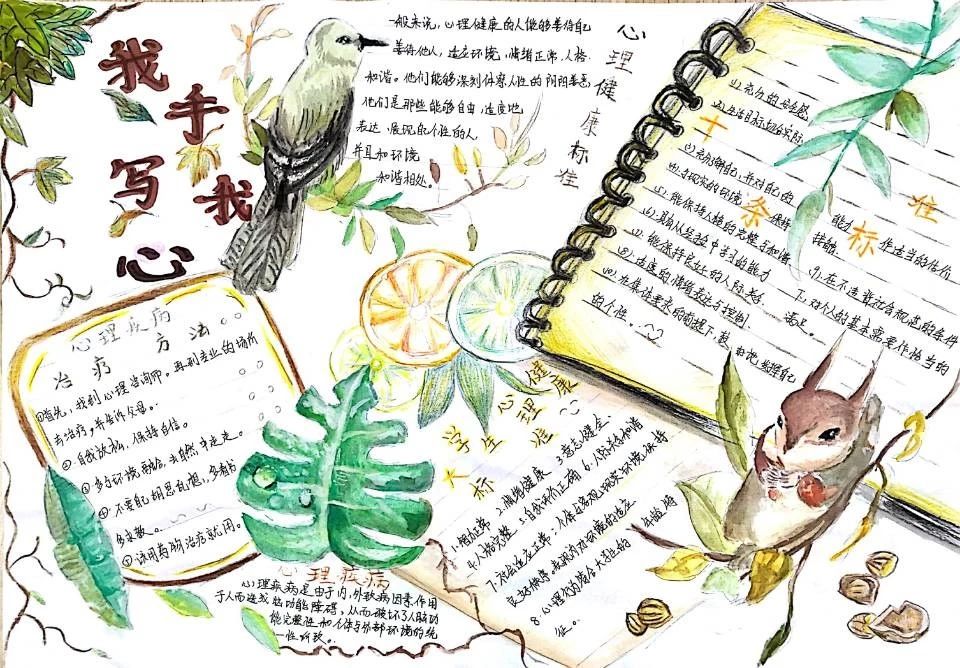 我手写我心
心理健康标准
一般来说，心理健康的人能够善待自己
善待他人，适应环境，情绪正常，人格
和谐。他们能够深刻体察人性的阴阳善恶
他们是那些能够自由、适度地
表达、展现自己个性的人
并且和环境
和谐相处。
十条标准
(1)充分的安全感
(2)生活目标切合实际
(3)充分了解自己，并对自己的
能力作适当的估价
(4)与现实的环境保持
接触
(5)能保持人格的完整与和谐
(6)具有从经验中学习的能力
(7)能保持良好的人际关系
(8)适度的情绪表达与控制
(9)在集体要求的前提下，
的个性。
9、在不违背社会规范的条件
下，对个人的基本需要作恰当的
满足。
心理疾病
治疗方法
①首先，找到心理咨询师。再到专业的场所
去治疗，并告诉父母。
②自我放松，保持自信。
③多与环境融合，去大自然中走走。
④不要自己胡思乱想，多看书
多求教。
⑤该用药物治疗就用。
大学生心理健康
标准
1.智力正常 2.情绪健康 3.意志健全
4.人格完整 5.自我评价正确 6.人际关系和谐
7.社会适应正常：个体与客观现实环境保持
良好秩序
8.心理行为符合大学生的
年龄
征。
心理疾病
心理疾病是由于内、外致病因素作用
于人而造成脑功能障碍，从而破坏了人脑功
能完整性和个体与外部环境的统
一性所致。